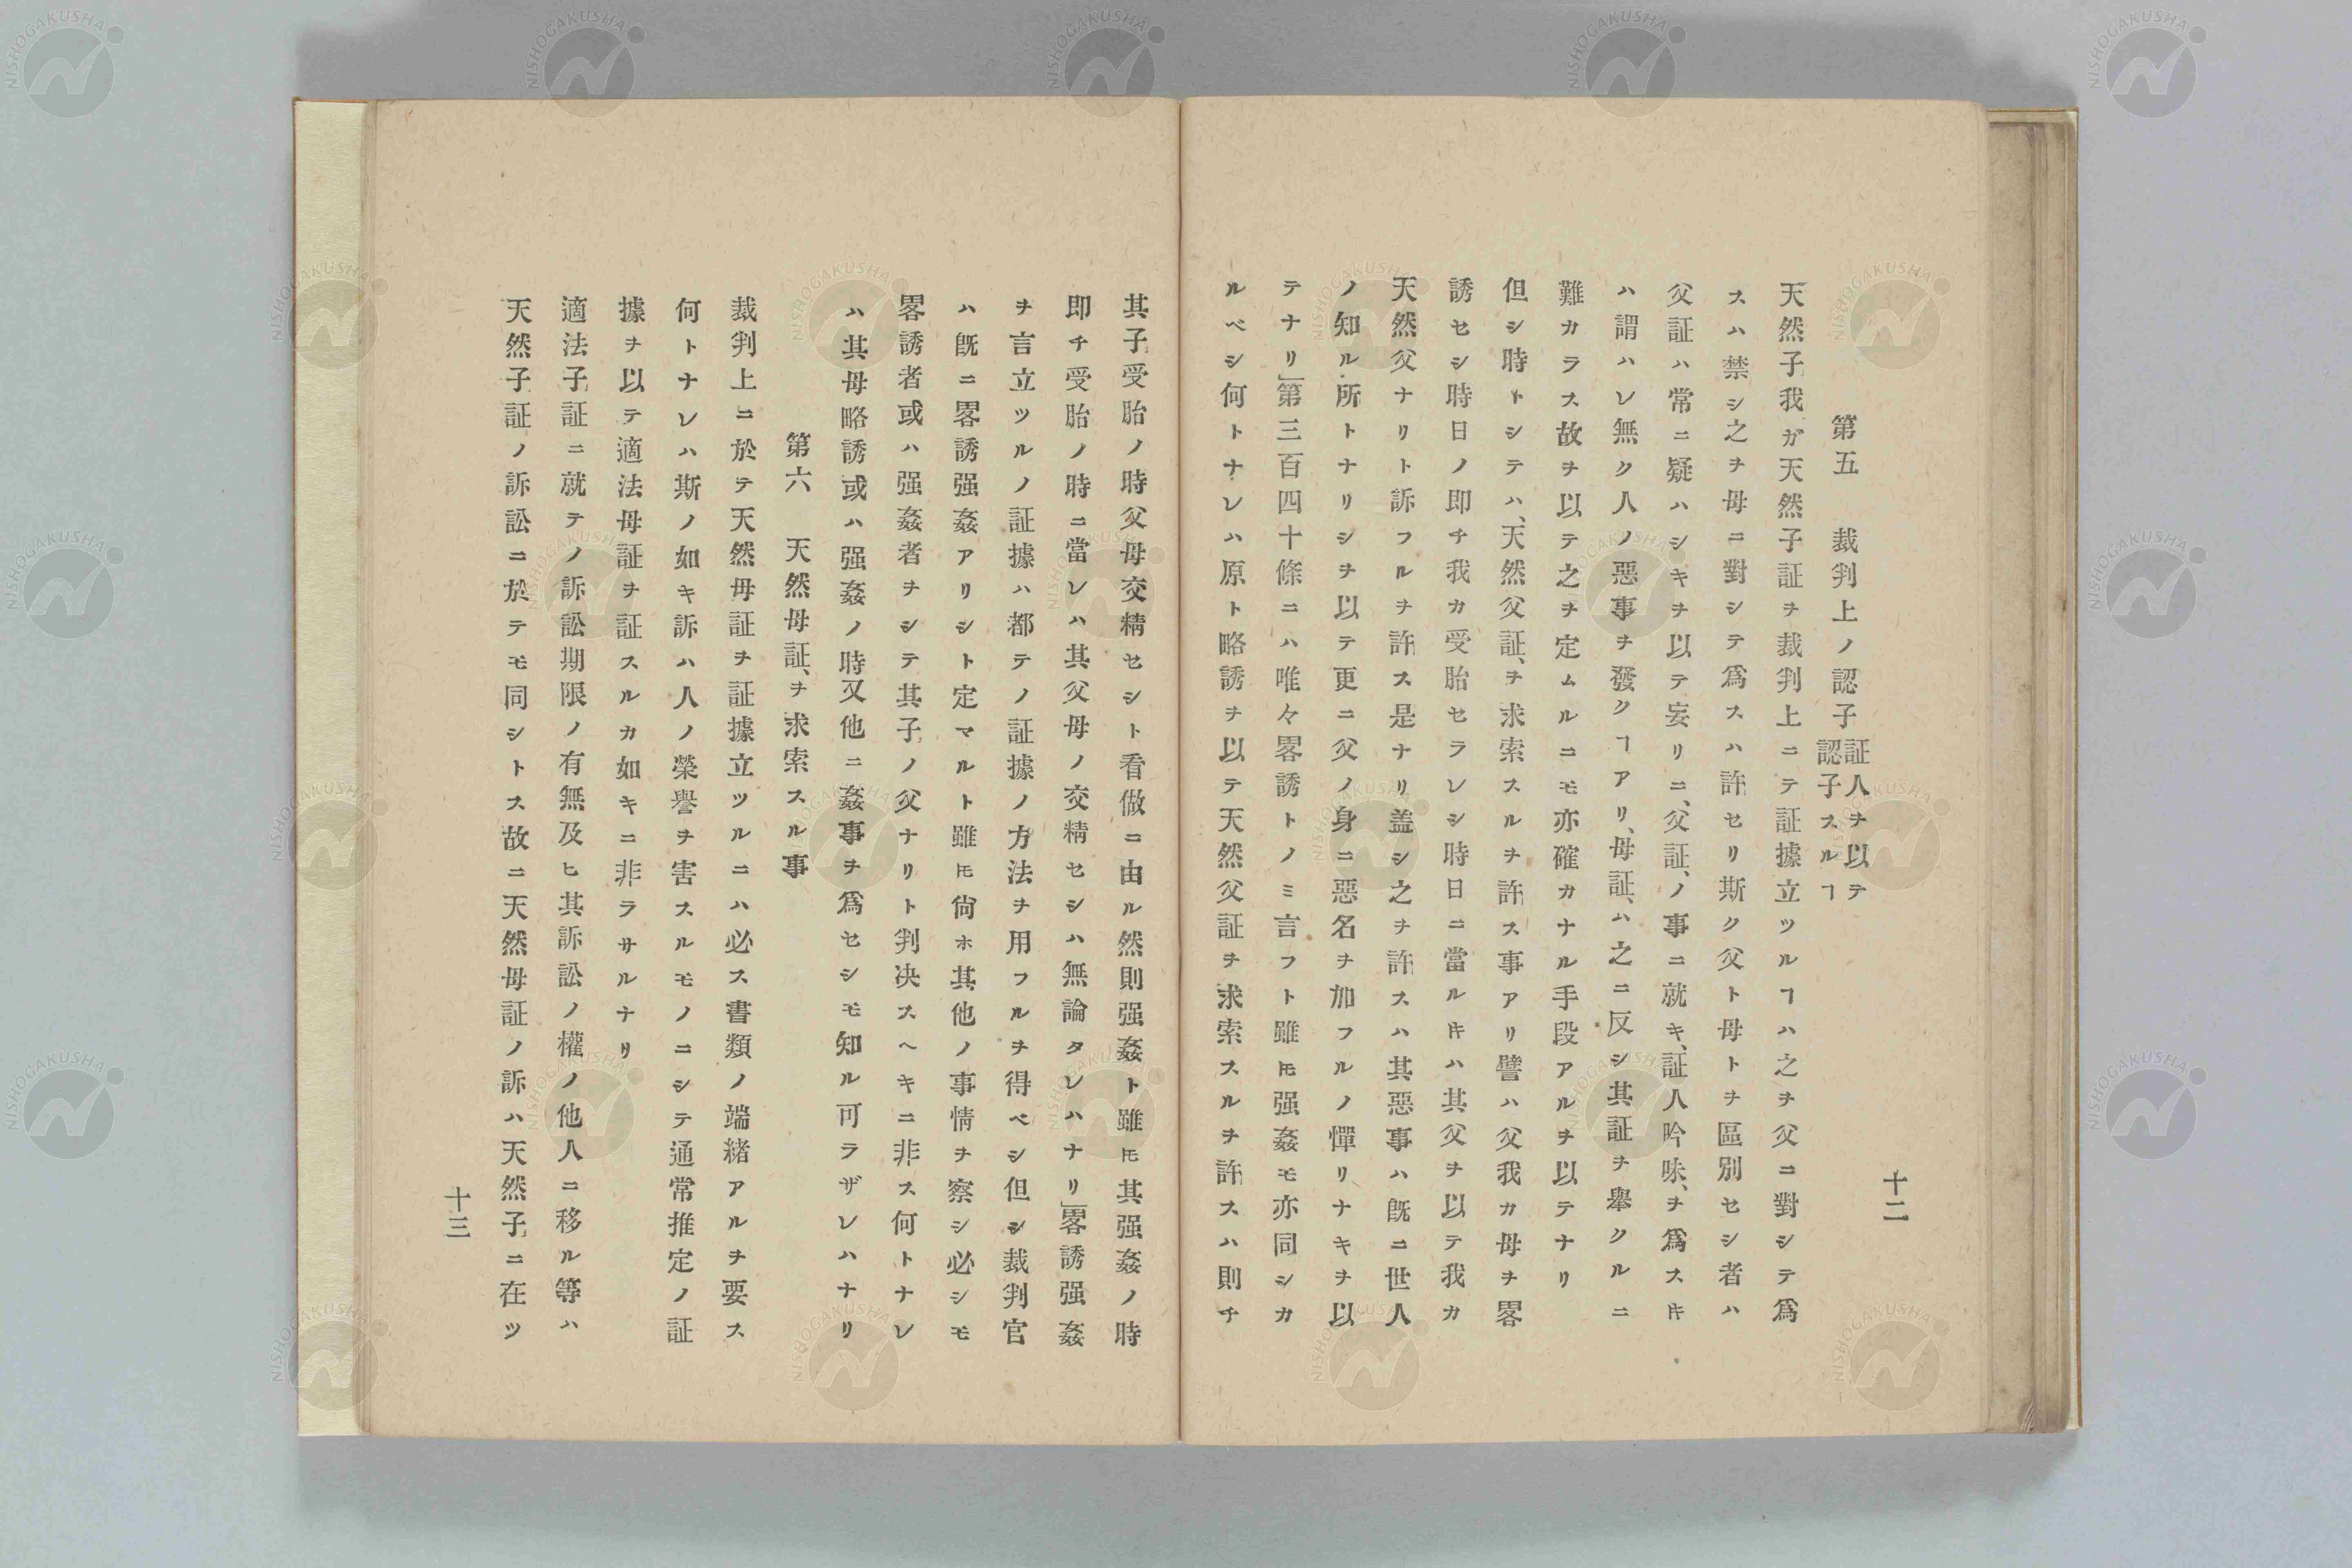 十二
第五 裁判上ノ認子証人ヲ以テ認子スルヿ
天然子我ガ天然子証ヲ裁判上ニテ証據立ツルヿハ之ヲ父ニ對シテ爲
スハ禁シ之ヲ母ニ對シテ爲スハ許セリ斯ク父ト母トヲ區別セシ者ハ
父証ハ常ニ疑ハシキヲ以テ妄リニ、父証、ノ事ニ就キ、証人吟味、ヲ爲スキ
ハ謂ハレ無ク人ノ惡事ヲ發クヿアリ、母証、ハ之ニ反シ其証ヲ舉クルニ
難カラス故ヲ以テ之ヲ定ムルニモ亦確カナル手段アルヲ以テナリ
但シ時トシテハ、天然父証、ヲ求索スルヲ許ス事アリ譬ハ父我カ母ヲ畧
誘セシ時日ノ即チ我カ受胎セラレシ時日ニ當ルキハ其父ヲ以テ我カ
天然父ナリト訴フルヲ許ス是ナリ盖シ之ヲ許スハ其惡事ハ既ニ世人
ノ知ル所トナリシヲ以テ更ニ父ノ身ニ惡名ヲ加フルノ憚リナキヲ以
テナリ」第三百四十條ニハ唯々畧誘トノミ言フト雖𪜈强姦モ亦同シカ
ルベシ何トナレハ原ト略誘ヲ以テ天然父証ヲ求索スルヲ許スハ則チ
其子受胎ノ時父母交精セシト看做ニ由ル然則强姦ト雖𪜈其强姦ノ時
即チ受胎ノ時ニ當レハ其父母ノ交精セシハ無論タレハナリ」畧誘强姦
ヲ言立ツルノ証據ハ都テノ証據ノ方法ヲ用フルヲ得ベシ但シ裁判官
ハ既ニ畧誘强姦アリシト定マルト雖𪜈尙ホ其他ノ事情ヲ察シ必シモ
畧誘者或ハ强姦者ヲシテ其子ノ父ナリト判决スヘキニ非ス何トナレ
ハ其母略誘或ハ强姦ノ時又他ニ姦事ヲ爲セシモ知ル可ラザレハナリ
第六 天然母証、ヲ求索スル事
裁判上ニ於テ天然母証ヲ証據立ツルニハ必ス書類ノ端緒アルヲ要ス
何トナレハ斯ノ如キ訴ハ人ノ榮譽ヲ害スルモノニシテ通常推定ノ証
據ヲ以テ適法母証ヲ証スルカ如キニ非ラサルナリ
適法子証ニ就テノ訴訟期限ノ有無及ヒ其訴訟ノ權ノ他人ニ移ル等ハ
天然子証ノ訴訟ニ於テモ同シトス故ニ天然母証ノ訴ハ天然子ニ在ツ
十三